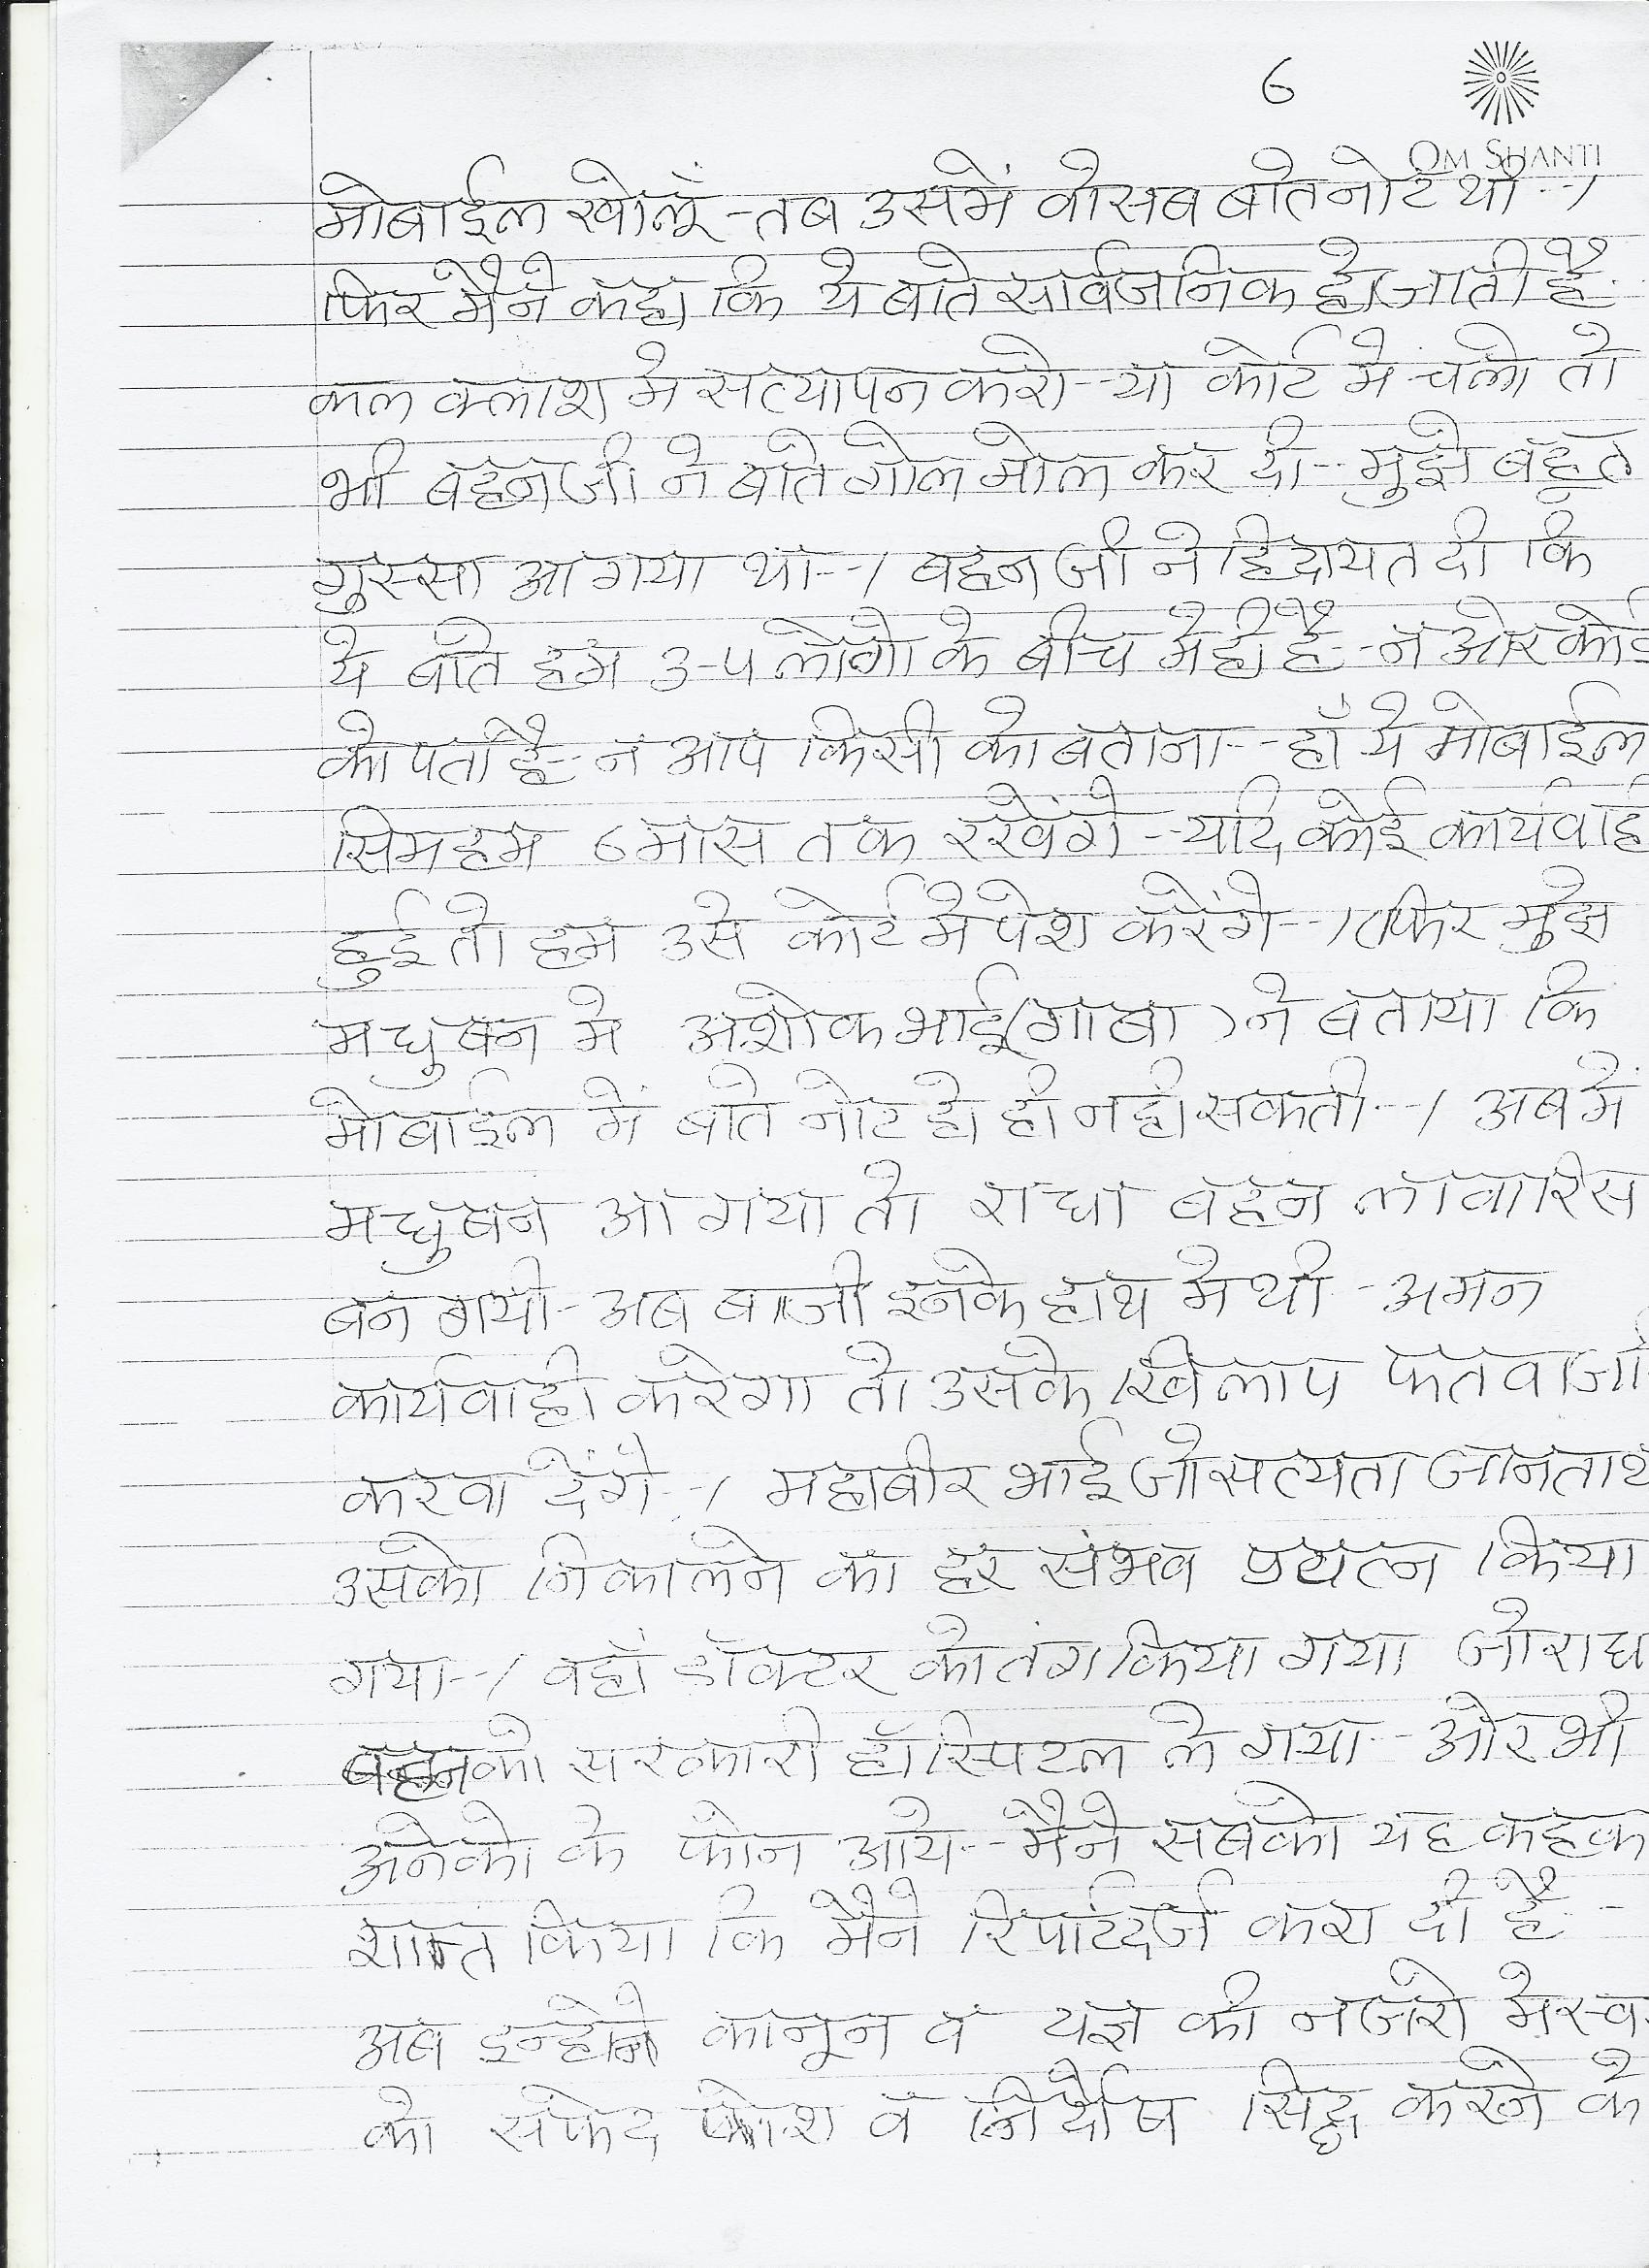 6
OM SHANTI
मोबाईल खोलूं - तब उसमें वो सब बाते नोट थी --।
फिर मैने कहा कि ये बाते सार्वजनिक हो जाती है
कल क्लाश मे सत्यापन करो -- या कोर्ट मे चलो तो
भी बहनजी ने बाते गोल मोल कर दी -- मुझे बहुत
गुस्सा आ गया था --। बहन जी ने हिदायत दी कि
ये बाते हम 3-4 लोगो के बीच मे ही है -- न और कोई
को पता है - न आप किसी को बताना -- हाँ ये मोबाईल
सिम हम 6 मास तक रखेंगे -- यदि कोई कार्यवाही
हुई तो हम उसे कोर्ट मे पेश करेंगे --। फिर मुझे
मधुबन मे अशोक भाई (गाबा) ने बताया कि
मोबाईल में बाते नोट हो ही नही सकती --। अब में
मधुबन आ गया तो राधा बहन लावारिस
बन गयी - अब बाजी इनके हाथ मे थी - अमन
कार्यवाही करेगा तो उसके खिलाप फतवा जा
करवा देंगे --। महाबीर भाई जो सत्यता जानता थ
उसको निकालने का हर संभव प्रयत्न किया
गया --। वहाँ डॉक्टर को तंग किया गया जो राध
बहन को सरकारी हॉस्पिटल ले गया -- और भी
अनेको के फोन आये -- मैने सबको यह कहक
शान्त किया कि मैने रिपोर्ट दर्ज करा दी है --
अब इन्होने कानून व यज्ञ की नजरो मे स्व
को सफेद पोश व निर्दोष सिद्ध करने के